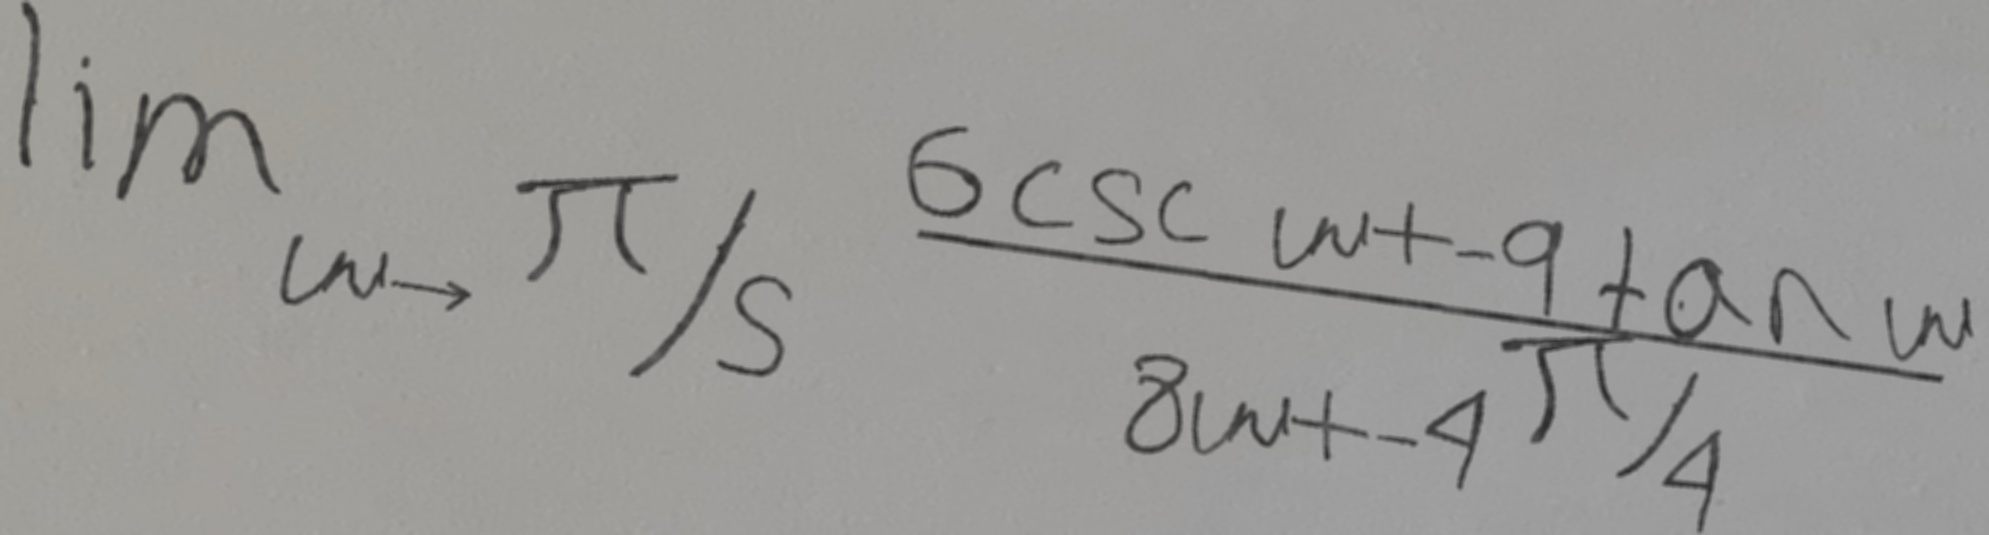 lim w→π/5 6 csc w+-9 tan w / 8w+-4π/4